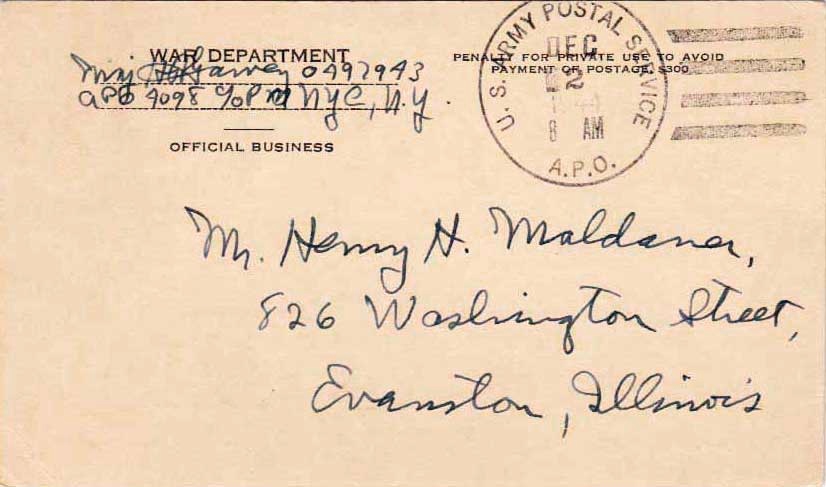 WAR DEPARTMENT
Maj Harvey 0497943
APO 4098 c/o PM NYC, N.Y.
OFFICIAL BUSINESS
PENALTY FOR PRIVATE USE TO AVOID
PAYMENT OF POSTAGE, $300
U. S. ARMY POSTAL SERVICE
DEC
2
8 AM
A.P.O.
Mr. Henry H. Maldaner,
826 Washington Street,
Evanston, Illinois